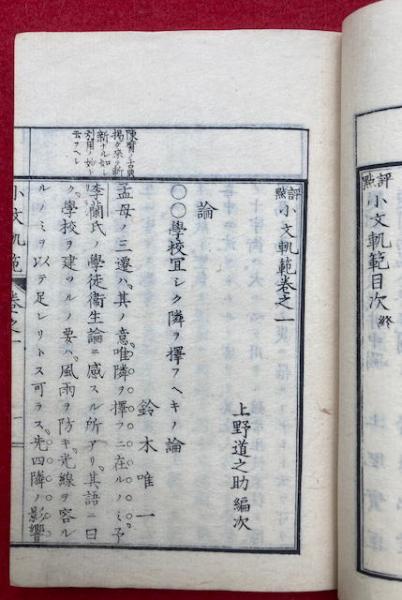 評點小文軌範目次終
評點小文軌範卷之一
上野道之助編次
論
〇〇學校宜シク隣ヲ擇フヘキノ論
鈴木唯一
孟母ノ三遷ハ其ノ意唯隣ヲ擇フニ在ルノミ予
李蘭氏ノ學徒衞生論ニ感スル所アリ其語ニ曰
ク學校ヲ建ツルノ要ハ風雨ヲ防キ光線ヲ容ル
ルノミヲ以テ足レリトス可ラス先四隣ノ影響
小文軌範 卷之一